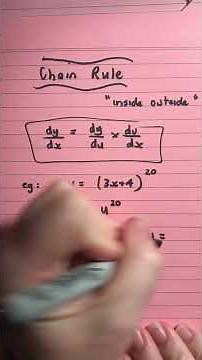 Chain Rule
"inside outside"
dy/dx = dy/du × du/dx
eg: y = (3x+4)^20
u^20